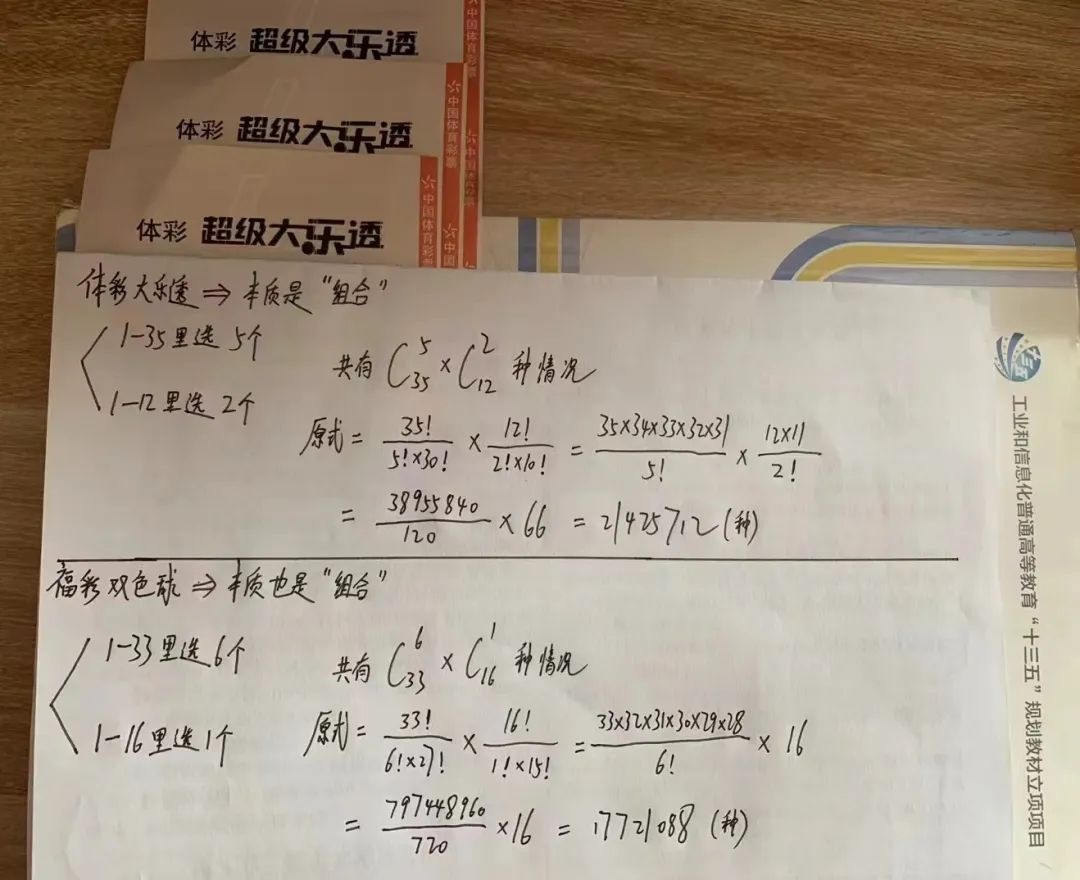 体彩 超级大乐透
中国体育彩票
体彩 超级大乐透
中国体育彩票
体彩 超级大乐透
中国体育彩票
体彩大乐透 ⇒ 本质是“组合”
1-35里选5个
1-12里选2个
共有 C₃₅⁵ × C₁₂² 种情况
原式 = 35!/(5!×30!) × 12!/(2!×10!) = (35×34×33×32×31)/5! × (12×11)/2!
= 38955840/120 × 66 = 21425712(种)
福彩双色球 ⇒ 本质也是“组合”
1-33里选6个
1-16里选1个
共有 C₃₃⁶ × C₁₆¹ 种情况
原式 = 33!/(6!×27!) × 16!/(1!×15!) = (33×32×31×30×29×28)/6! × 16
= 797448960/720 × 16 = 17721088 (种)
十三五
工业和信息化普通高等教育“十三五”规划教材立项项目